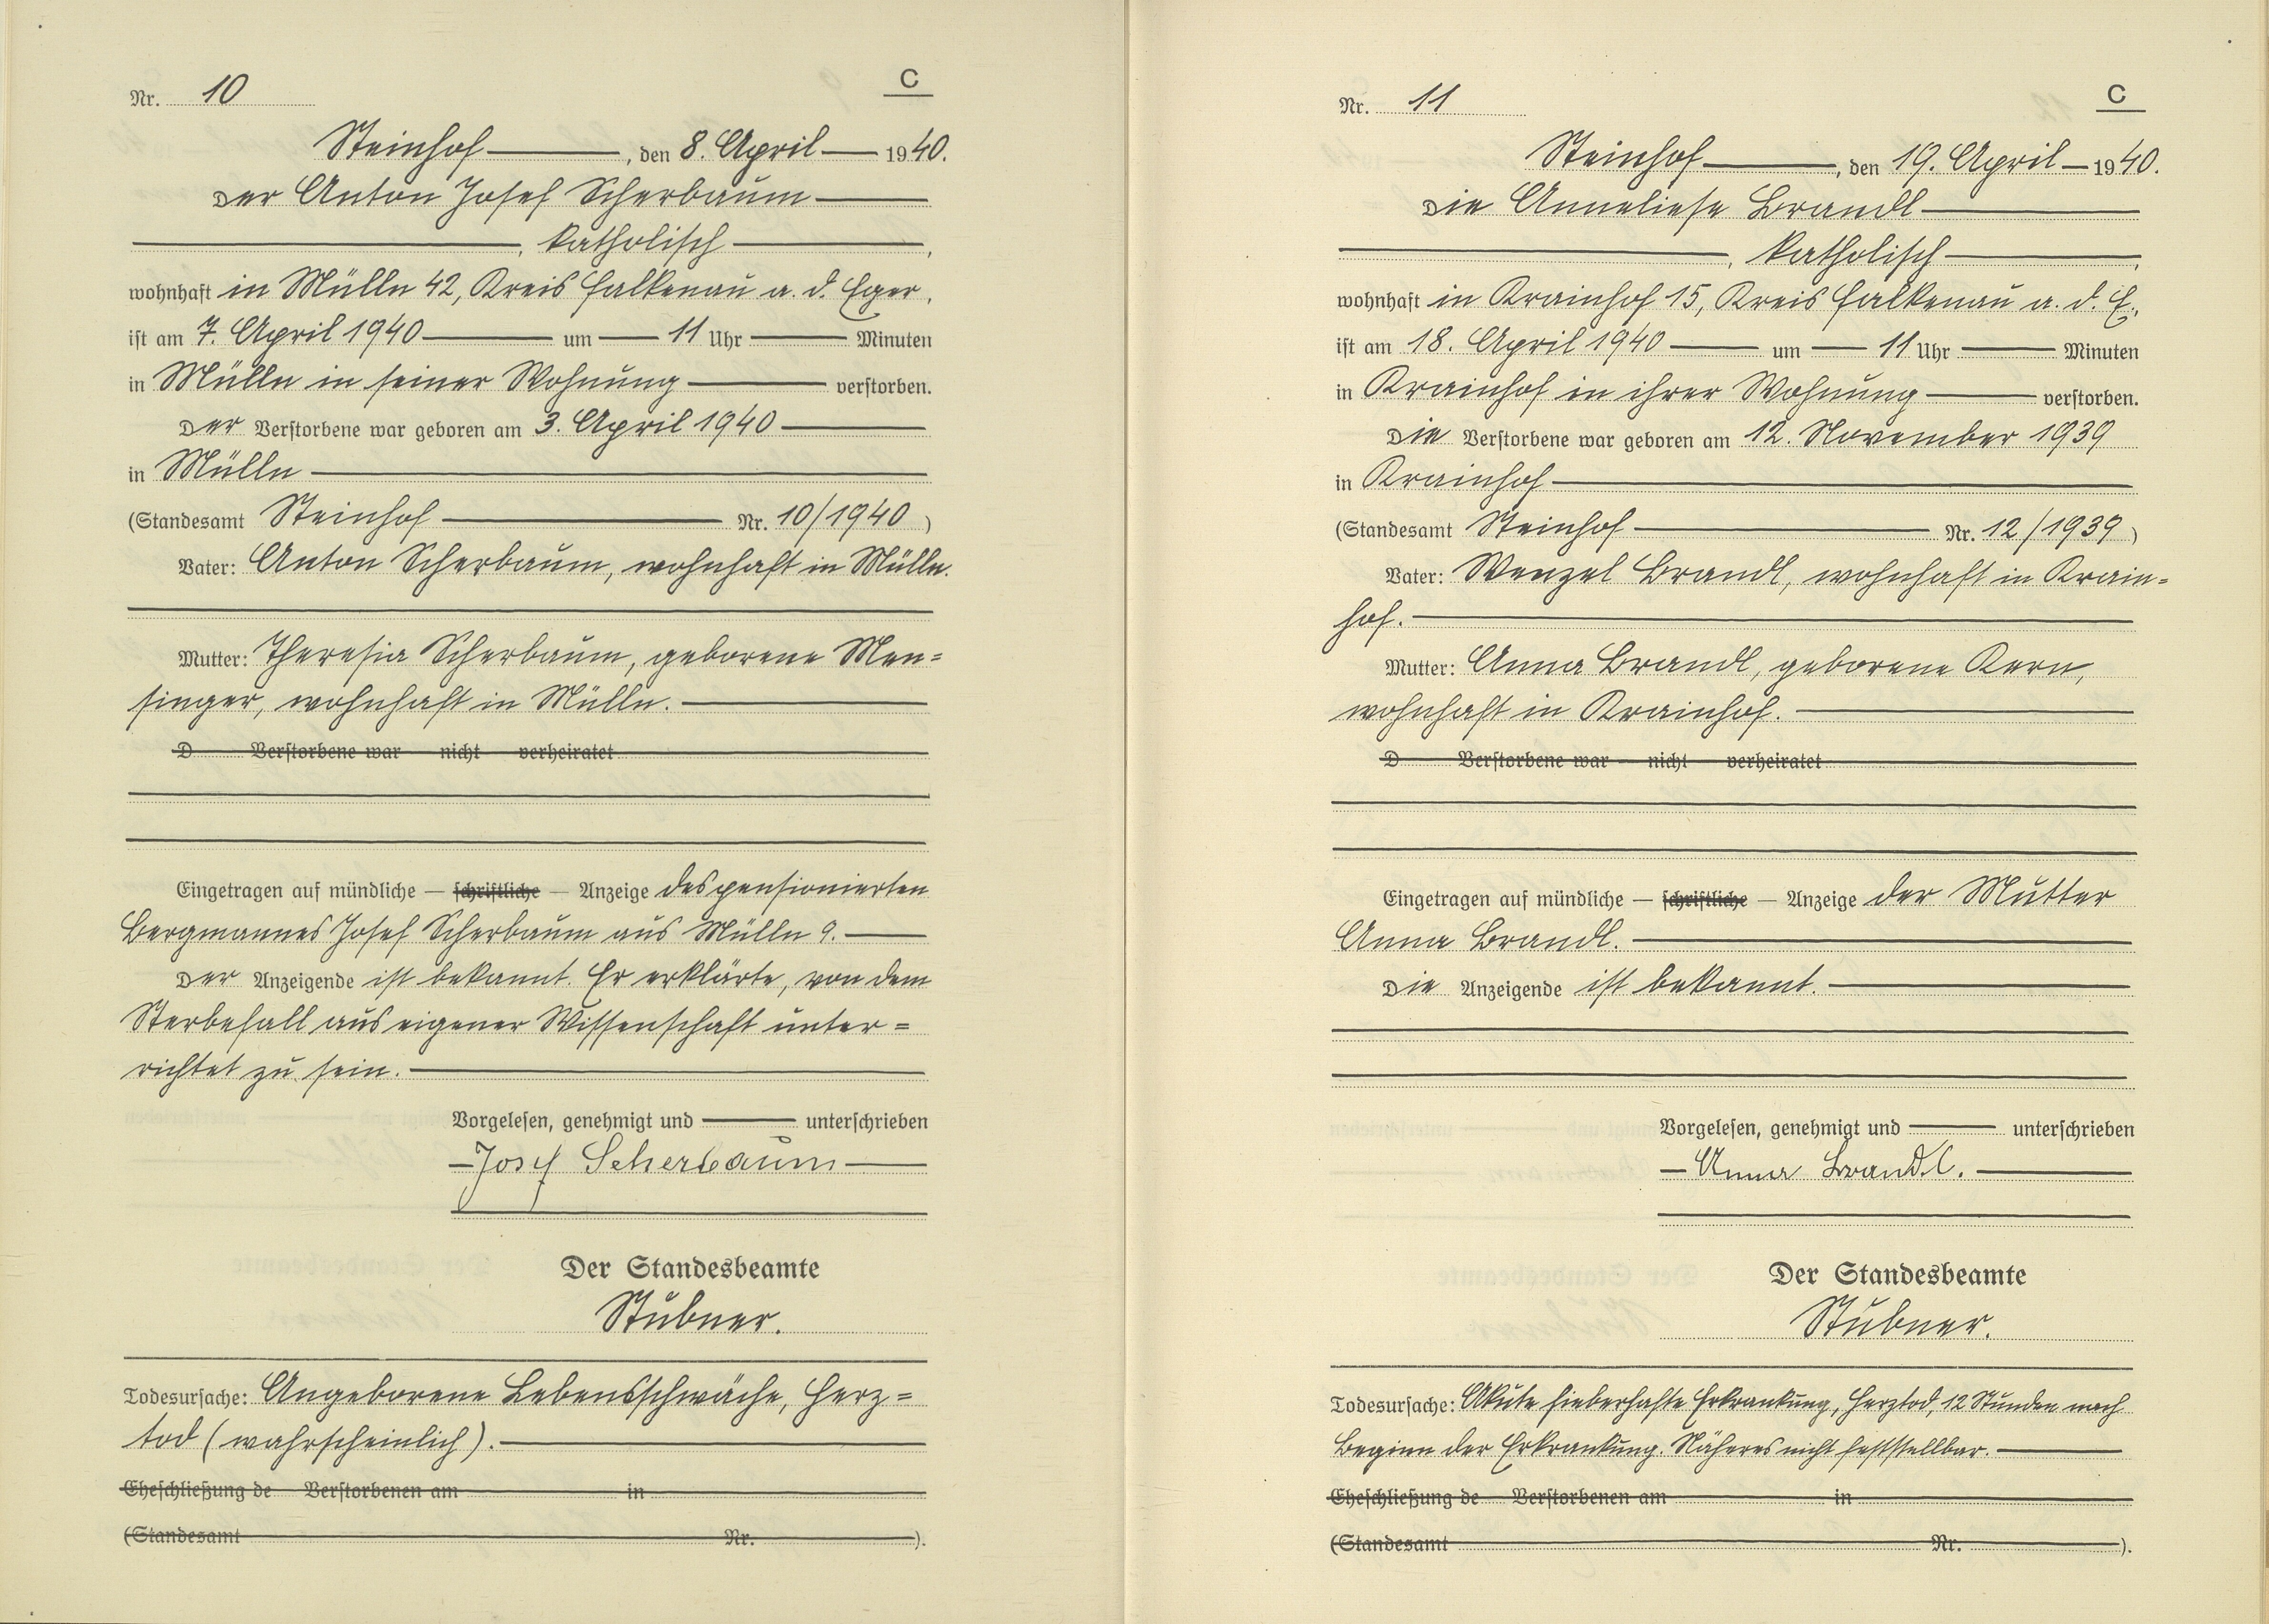 Nr. 10
C
Steinhof, den 8. April 1940.
Der Anton Josef Scherbaum
, katholisch,
wohnhaft in Mülln 42, Kreis Falkenau a. d. Eger,
ist am 7. April 1940 um 11 Uhr Minuten
in Mülln in seiner Wohnung verstorben.
Der Verstorbene war geboren am 3. April 1940
in Mülln
(Standesamt Steinhof Nr. 10/1940)
Vater: Anton Scherbaum, wohnhaft in Mülln.
Mutter: Theresia Scherbaum, geborene Men=
singer, wohnhaft in Mülln.
D Verstorbene war nicht verheiratet
Eingetragen auf mündliche — schriftliche — Anzeige des pensionierten
Bergmannes Josef Scherbaum aus Mülln 9.
Der Anzeigende ist bekannt. Er erklärte, von dem
Sterbefall aus eigener Wissenschaft unter=
richtet zu sein.
Vorgelesen, genehmigt und unterschrieben
Josef Scherbaum
Der Standesbeamte
Stübner.
Todesursache: Angeborene Lebensschwäche, Herz=
tod (wahrscheinlich).
Eheschließung de Verstorbenen am in
(Standesamt Nr. ).
Nr. 11
C
Steinhof, den 19. April 1940.
Die Anneliese Brandl
, katholisch,
wohnhaft in Krainhof 15, Kreis Falkenau a. d. E.,
ist am 18. April 1940 um 11 Uhr Minuten
in Krainhof in ihrer Wohnung verstorben.
Die Verstorbene war geboren am 12. November 1939
in Krainhof
(Standesamt Steinhof Nr. 12/1939)
Vater: Wenzel Brandl, wohnhaft in Krain=
hof.
Mutter: Anna Brandl, geborene Kern,
wohnhaft in Krainhof.
D Verstorbene war nicht verheiratet
Eingetragen auf mündliche — schriftliche — Anzeige der Mutter
Anna Brandl.
Die Anzeigende ist bekannt.
Vorgelesen, genehmigt und unterschrieben
Anna Brandl.
Der Standesbeamte
Stübner.
Todesursache: Akute fieberhafte Erkrankung, Herztod, 12 Stunden nach
Beginn der Erkrankung. Näheres nicht feststellbar.
Eheschließung de Verstorbenen am in
(Standesamt Nr. ).